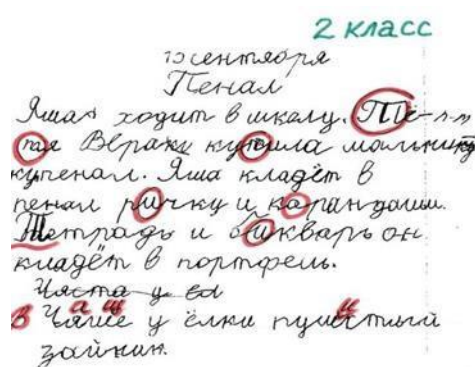 2 класс
10 сентября
Пенал
Яша ходит в школу. Тё-
тя Вера ку купила мальчику
пенал. Яша кладёт в
пенал ричку и карандаши.
Тетрадь и букварь он
кладёт в портфель.
Часта у ёл
В Чаще у ёлки пушистый
зайкин.